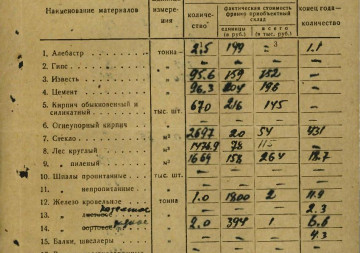 Наименование материалов измере-ния количе-ство фактическая стоимость франко-приобъектный склад единицы (в руб.) всего (в тыс. руб.) конец года — количество
1. Алебастр тонна 2.5 149 - 1.1
2. Гипс "
3. Известь " 95.6 159 152 -
4. Цемент " 96.3 204 196 -
5. Кирпич обыкновенный и силикатный тыс. шт. 670 216 145 -
6. Огнеупорный кирпич "
7. Стекло м² 2697 20 54 431
8. Лес круглый м³ 78
9. " пиленый м³ 1669 158 264 18.7
10. Шпалы пропитанные тыс. шт. - - - -
11. " непропитанные " - - - -
12. Железо кровельное тонна 1.0 1800 2 11.9
13. " " - - - 2.3
14. " сортовое " 2.0 394 1 6.6
15. Балки, швеллеры " - - - 4.3